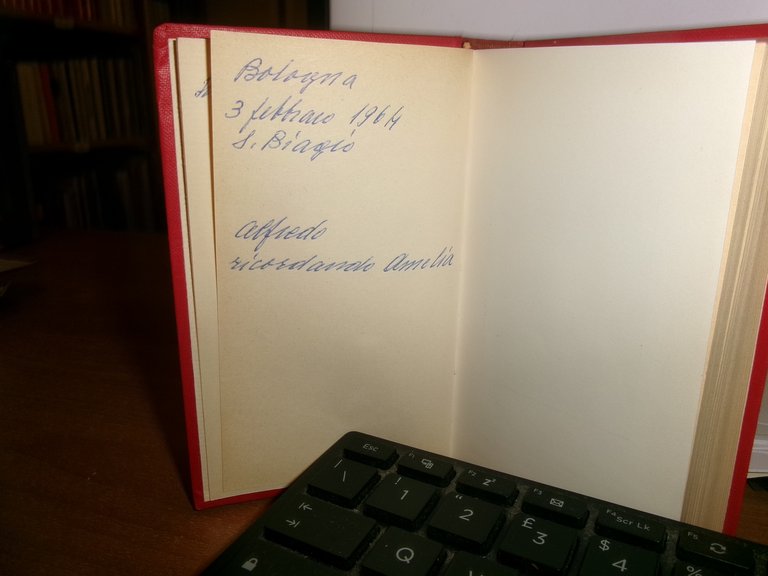 Bologna
3 febbraio 1964
S. Biagio
Alfredo
ricordando Amelia
Esc
F1
F2
F3
F4
Scr Lk
F5
| \
! 1
" 2
£ 3
$ 4
%
Q